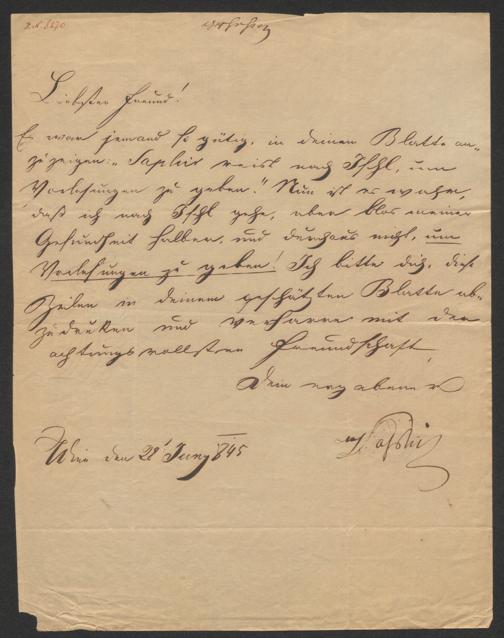 Liebster Freund!
Es war jemand so gütig, in deinem Blatte an-
zuzeigen: „Saphir reist nach Ischl, um
Vorlesungen zu geben." Nun ist es wahr,
daß ich nach Ischl gehe, aber blos meiner
Gesundheit halber, und durchaus nicht, um
Vorlesungen zu geben! Ich bitte dich, diese
Zeilen in deinem geschätzten Blatte ab-
zudrucken und verharre mit der
achtungsvollsten Freundschaft,
Dein ergebener
MSaphir
Wien den 28t Juny 845